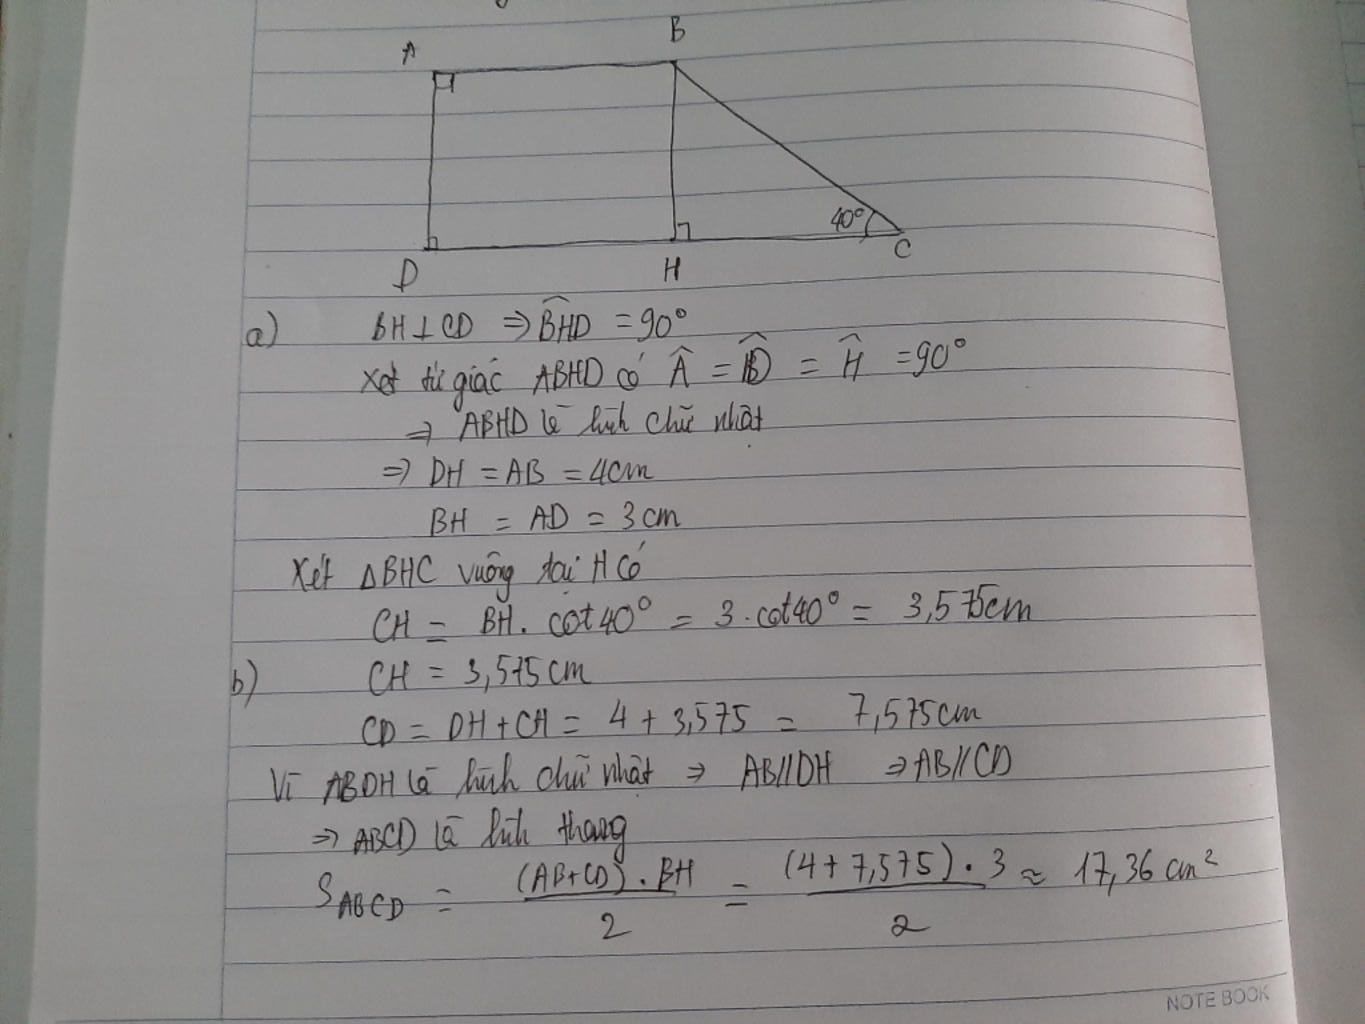 A B
40°
D H C
a) BH⊥CD ⇒ B̂HD = 90°
Xét tứ giác ABHD có Â = D̂ = Ĥ = 90°
⇒ ABHD là hình chữ nhật
⇒ DH = AB = 4cm
BH = AD = 3cm
Xét ΔBHC vuông tại H có
CH = BH. cot40° = 3.cot40° = 3,575cm
b) CH = 3,575cm
CD = DH+CH = 4 + 3,575 = 7,575cm
Vì ABDH là hình chữ nhật ⇒ AB//DH ⇒ AB//CD
⇒ ABCD là hình thang
S_ABCD = (AB+CD).BH / 2 = (4+7,575).3 / 2 ≈ 17,36 cm²
NOTE BOOK